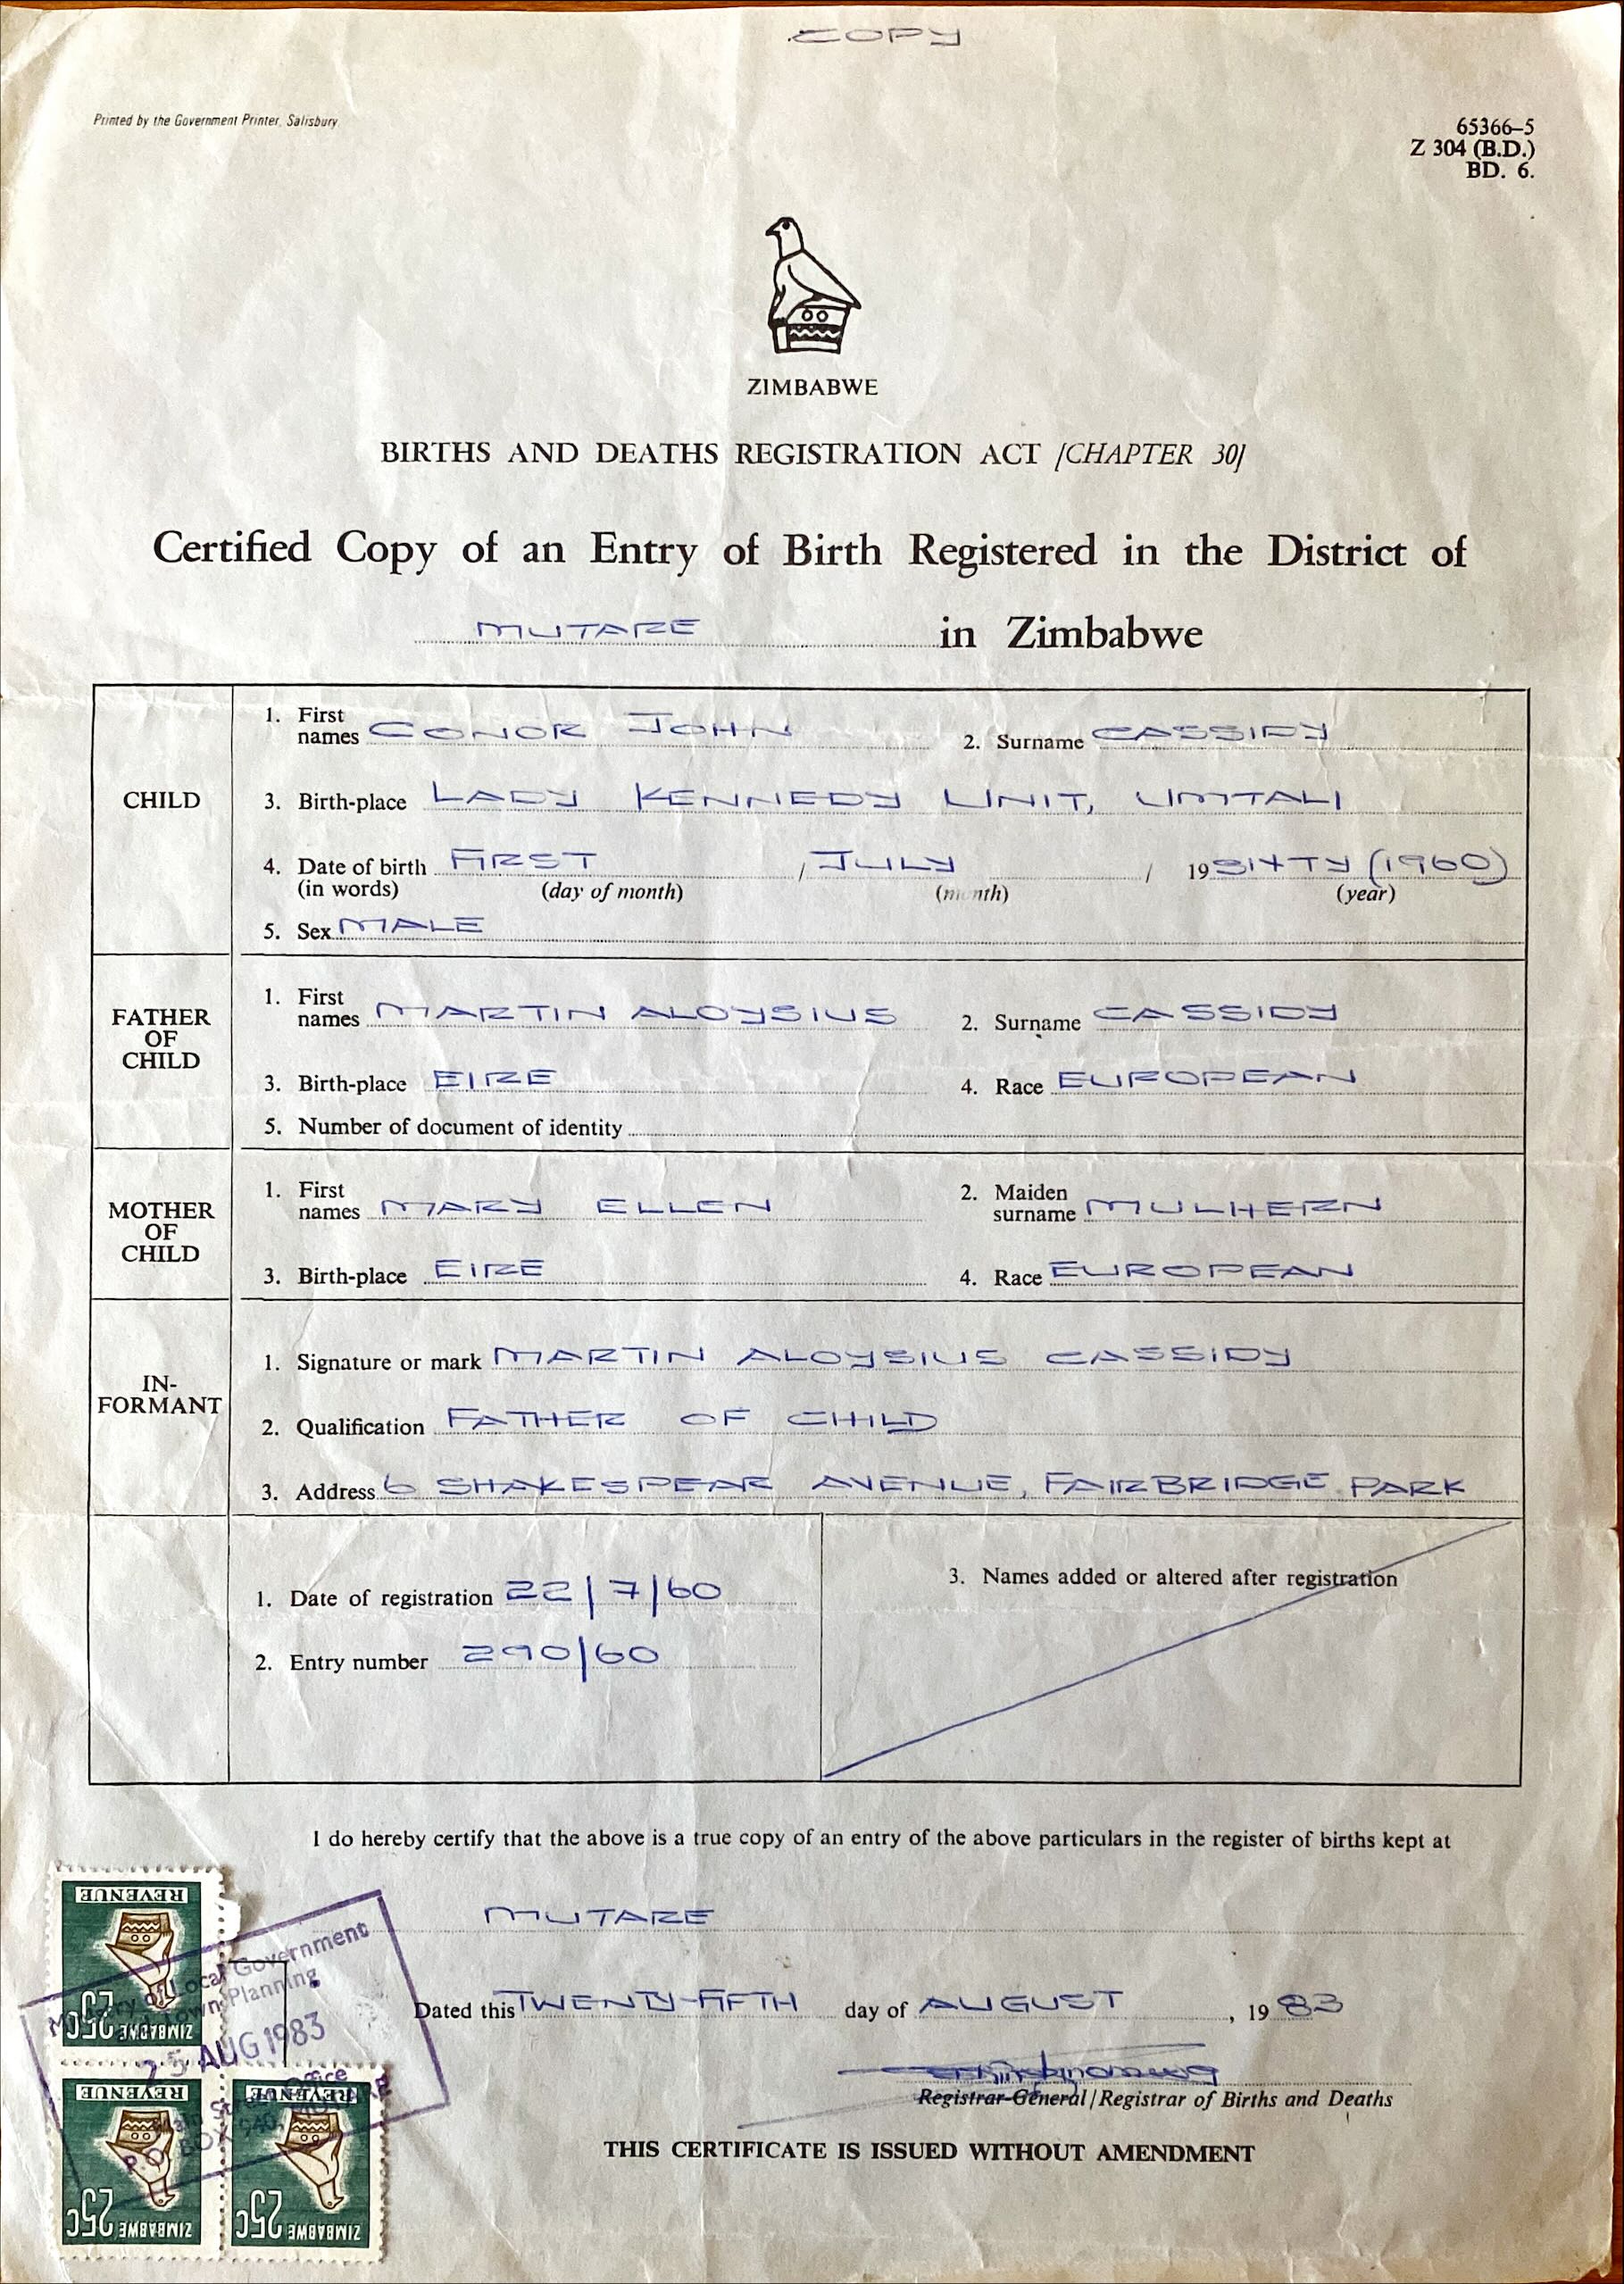 COPY
Printed by the Government Printer, Salisbury
65366–5
Z 304 (B.D.)
BD. 6.
ZIMBABWE
BIRTHS AND DEATHS REGISTRATION ACT [CHAPTER 30]
Certified Copy of an Entry of Birth Registered in the District of
MUTARE in Zimbabwe
CHILD
1. First names CONOR JOHN 2. Surname CASSIDY
3. Birth-place LADY KENNEDY UNIT, UMTALI
4. Date of birth FIRST / JULY / 19 SIXTY (1960)
(in words) (day of month) (month) (year)
5. Sex MALE
FATHER OF CHILD
1. First names MARTIN ALOYSIUS 2. Surname CASSIDY
3. Birth-place EIRE 4. Race EUROPEAN
5. Number of document of identity
MOTHER OF CHILD
1. First names MARY ELLEN 2. Maiden surname MULHERN
3. Birth-place EIRE 4. Race EUROPEAN
IN-FORMANT
1. Signature or mark MARTIN ALOYSIUS CASSIDY
2. Qualification FATHER OF CHILD
3. Address 6 SHAKESPEAR AVENUE, FAIRBRIDGE PARK
1. Date of registration 22/7/60
2. Entry number 290/60
3. Names added or altered after registration
I do hereby certify that the above is a true copy of an entry of the above particulars in the register of births kept at
MUTARE
Dated this TWENTY-FIFTH day of AUGUST, 19 83
Registrar-General/Registrar of Births and Deaths
THIS CERTIFICATE IS ISSUED WITHOUT AMENDMENT
REVENUE
25c ZIMBABWE
REVENUE
25c ZIMBABWE
REVENUE
25c ZIMBABWE
Ministry of Local Government
Town Planning
25 AUG 1983
Office
P.O. BOX